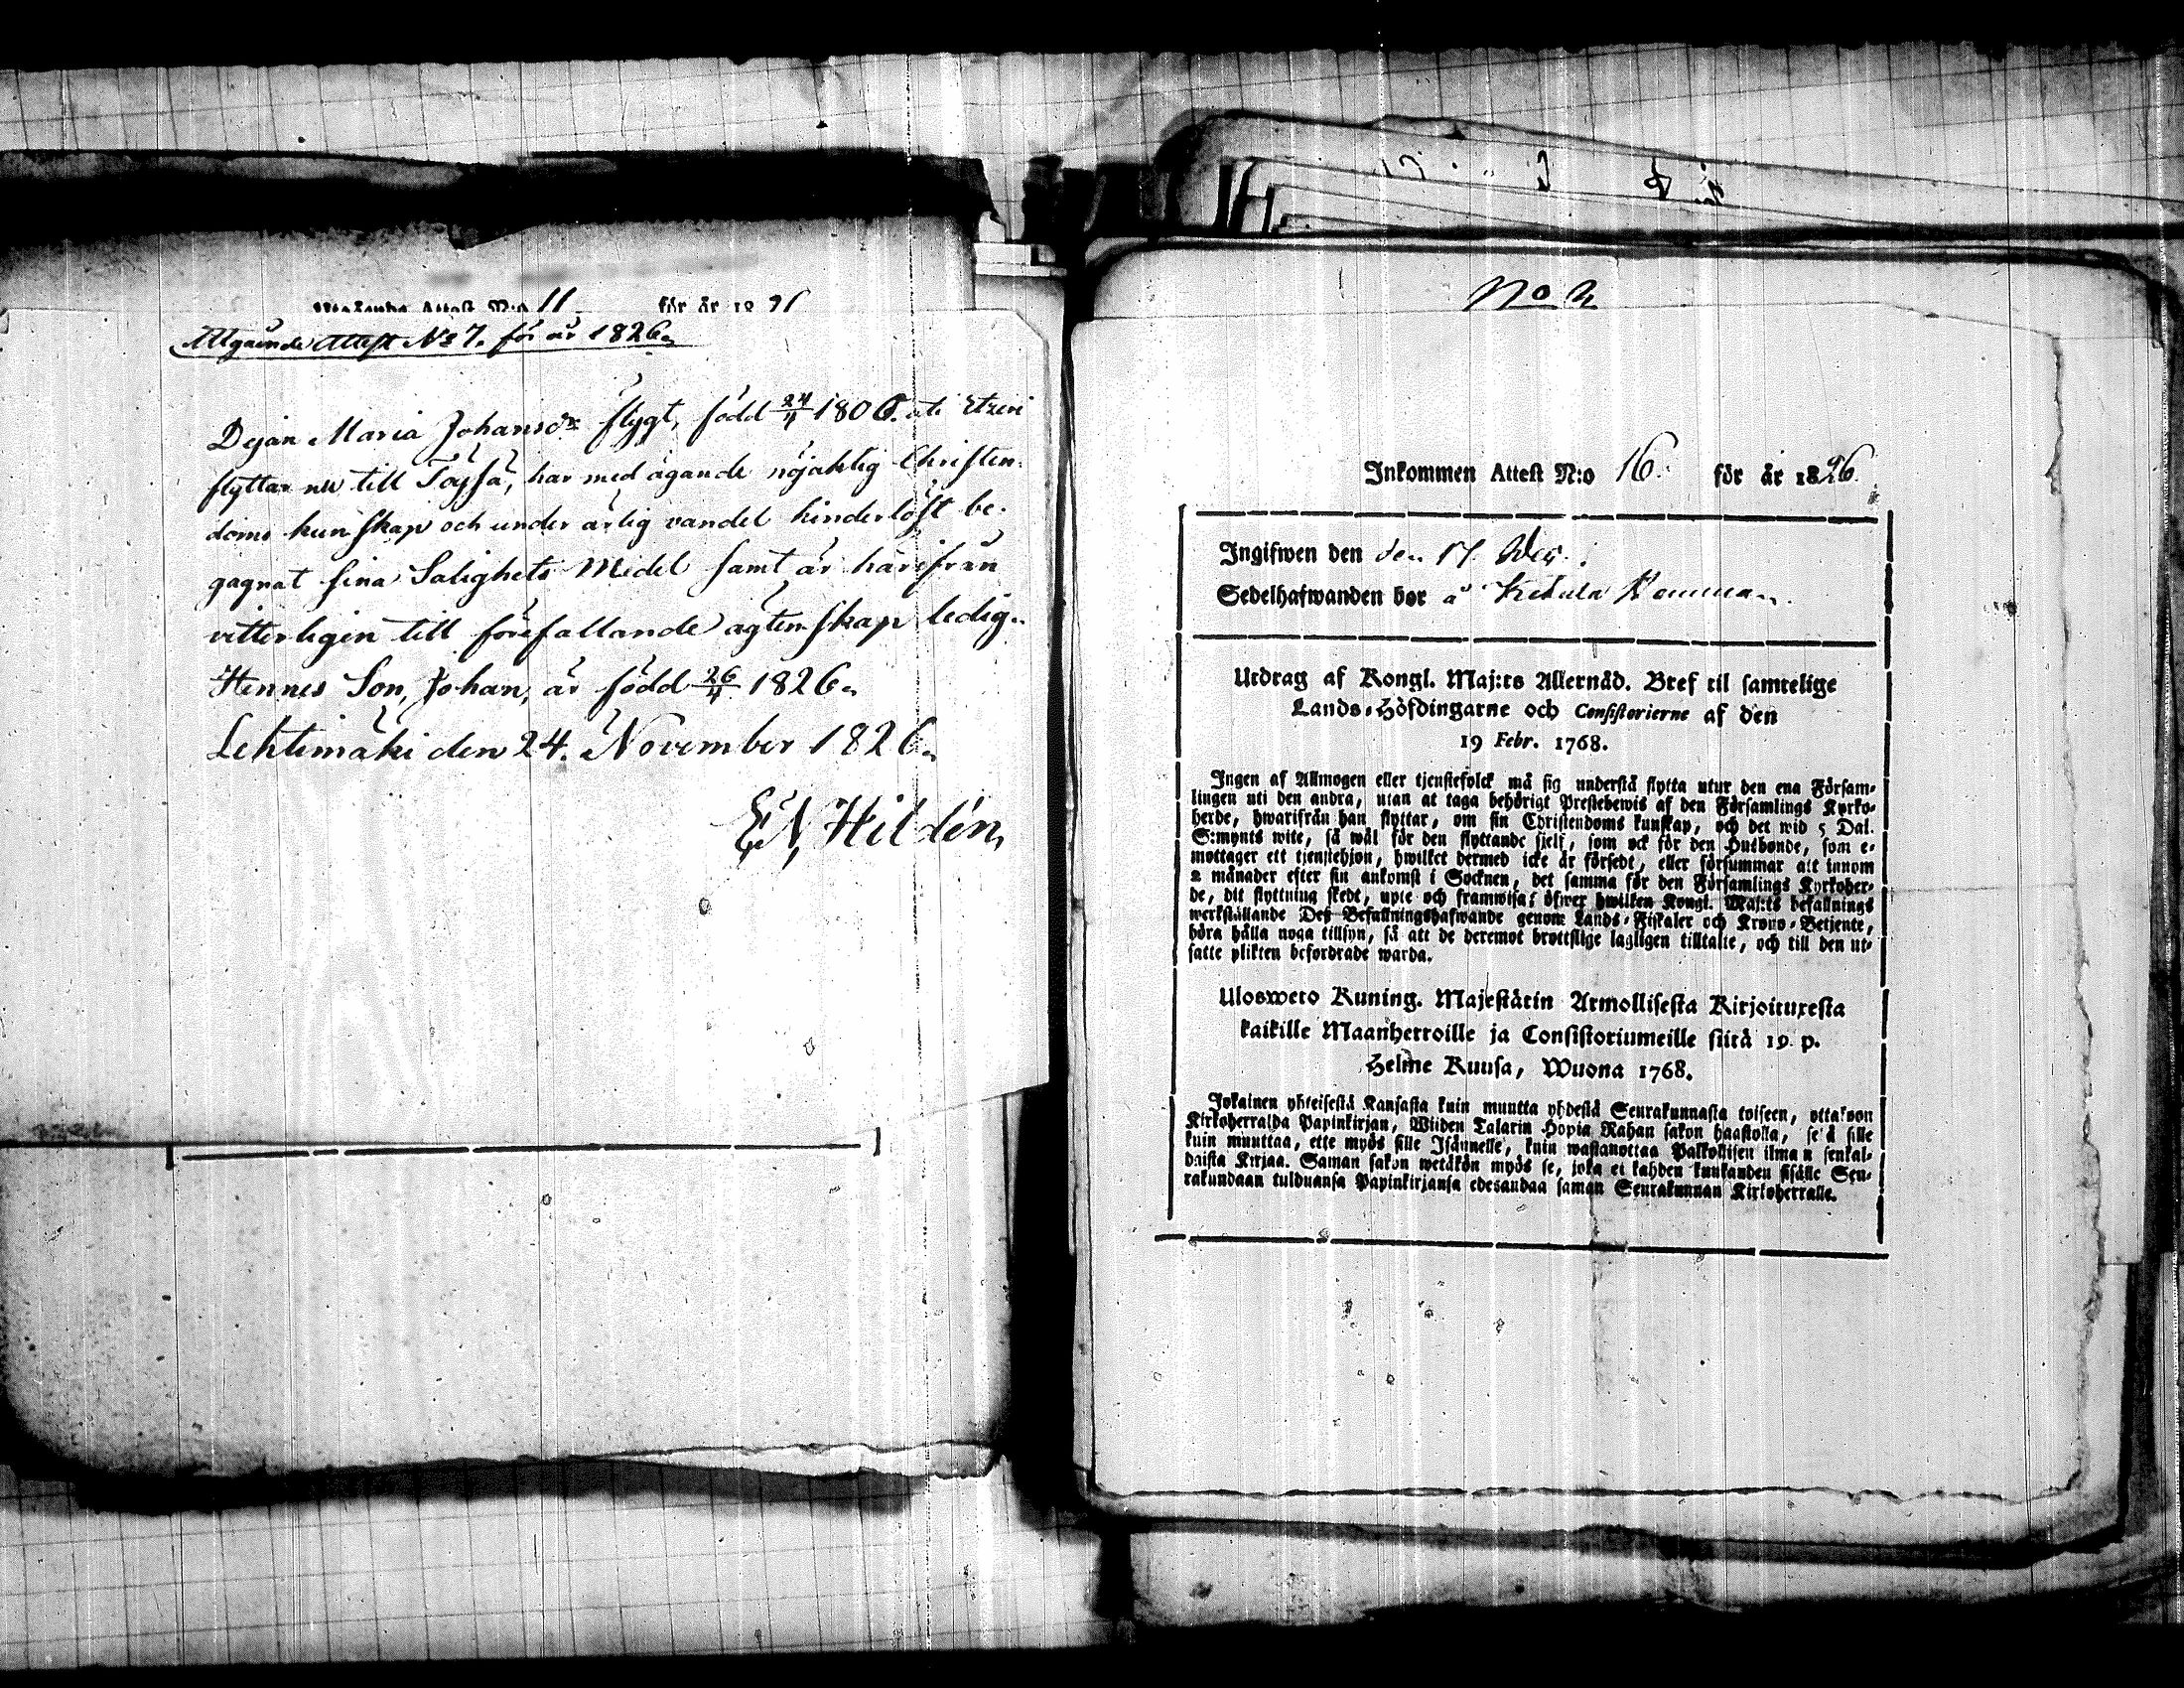 Attest N:o 11 för år 18
Utgående Attest No 7. för år 1826.
Dejan Maria Johansdr flygt, född 24/4 1806. uti Etzeri
flyttar nu till Töysä, har med ägande nöjaktig Christen-
doms kunskap och under ärlig vandel hinderlöst be-
gagnat sina Salighets Medel samt är härifrån
vitterligen till förefallande ägtenskap ledig.
Hennes Son, Johan, är född 26/4 1826.
Lehtimäki den 24. November 1826.
Hildén
No 2
Inkommen Attest N:o 16. för år 1826.
Ingifwen den den 17
Sedelhafwanden bor å
Utdrag af Kongl. Maj:ts Allernåd. Bref til samtelige
Lands-Höfdingarne och Consistorierne af den
19 Febr. 1768.
Ingen af Allmogen eller tjenstefolck må sig understå flytta utur den ena Församlingen
lingen uti den andra, utan at taga behörigt Prestebewis af den Församlings Kyrko-
herde, hwarifrån han flyttar, om sin Christendoms kunskap, och det wid 5 Dal.
S:mynts wite, så wäl för den flyttande sjelf, som ock för den Husbonde, som e-
mottager ett tjenstehjon, hwilket dermed icke är försedt, eller försummar att innom
2 månader efter sin ankomst i Socknen, det samma för den Församlings Kyrkoher-
de, dit flyttning skedt, upte och framwisa: öfwer hwilken Kongl. Maj:ts befallnings
werkställande Deß Befallningshafwande genom Lands-Fiskaler och Krono-Betjente,
böra hålla noga tillsyn, så att de deremot brottslige lagligen tilltalte, och till den ut-
satte plikten befordrade warda.
Ulosweto Kuning. Majestätin Armollisesta Kirjoituxesta
kaikille Maanherroille ja Consistoriumeille siitä 19. p.
Helme Kuusa, Wuona 1768.
Jokainen yhteisestä Kansasta kuin muutta yhdestä Seurakunnasta toiseen, ottakoon
Kirkoherralda Papinkirjan, Wiiden Talarin Hopia Rahan sakon haastolla, sekä sille
kuin muuttaa, ette myös sille Isännelle, kuin wastanottaa Palkollisen ilman senkal-
daista Kirjaa. Saman sakon wetäkön myös se, joka ei kahden kuukauden sisälle Seu-
rakundaan tulduansa Papinkirjansa edesandaa saman Seurakunnan Kirkoherralle.